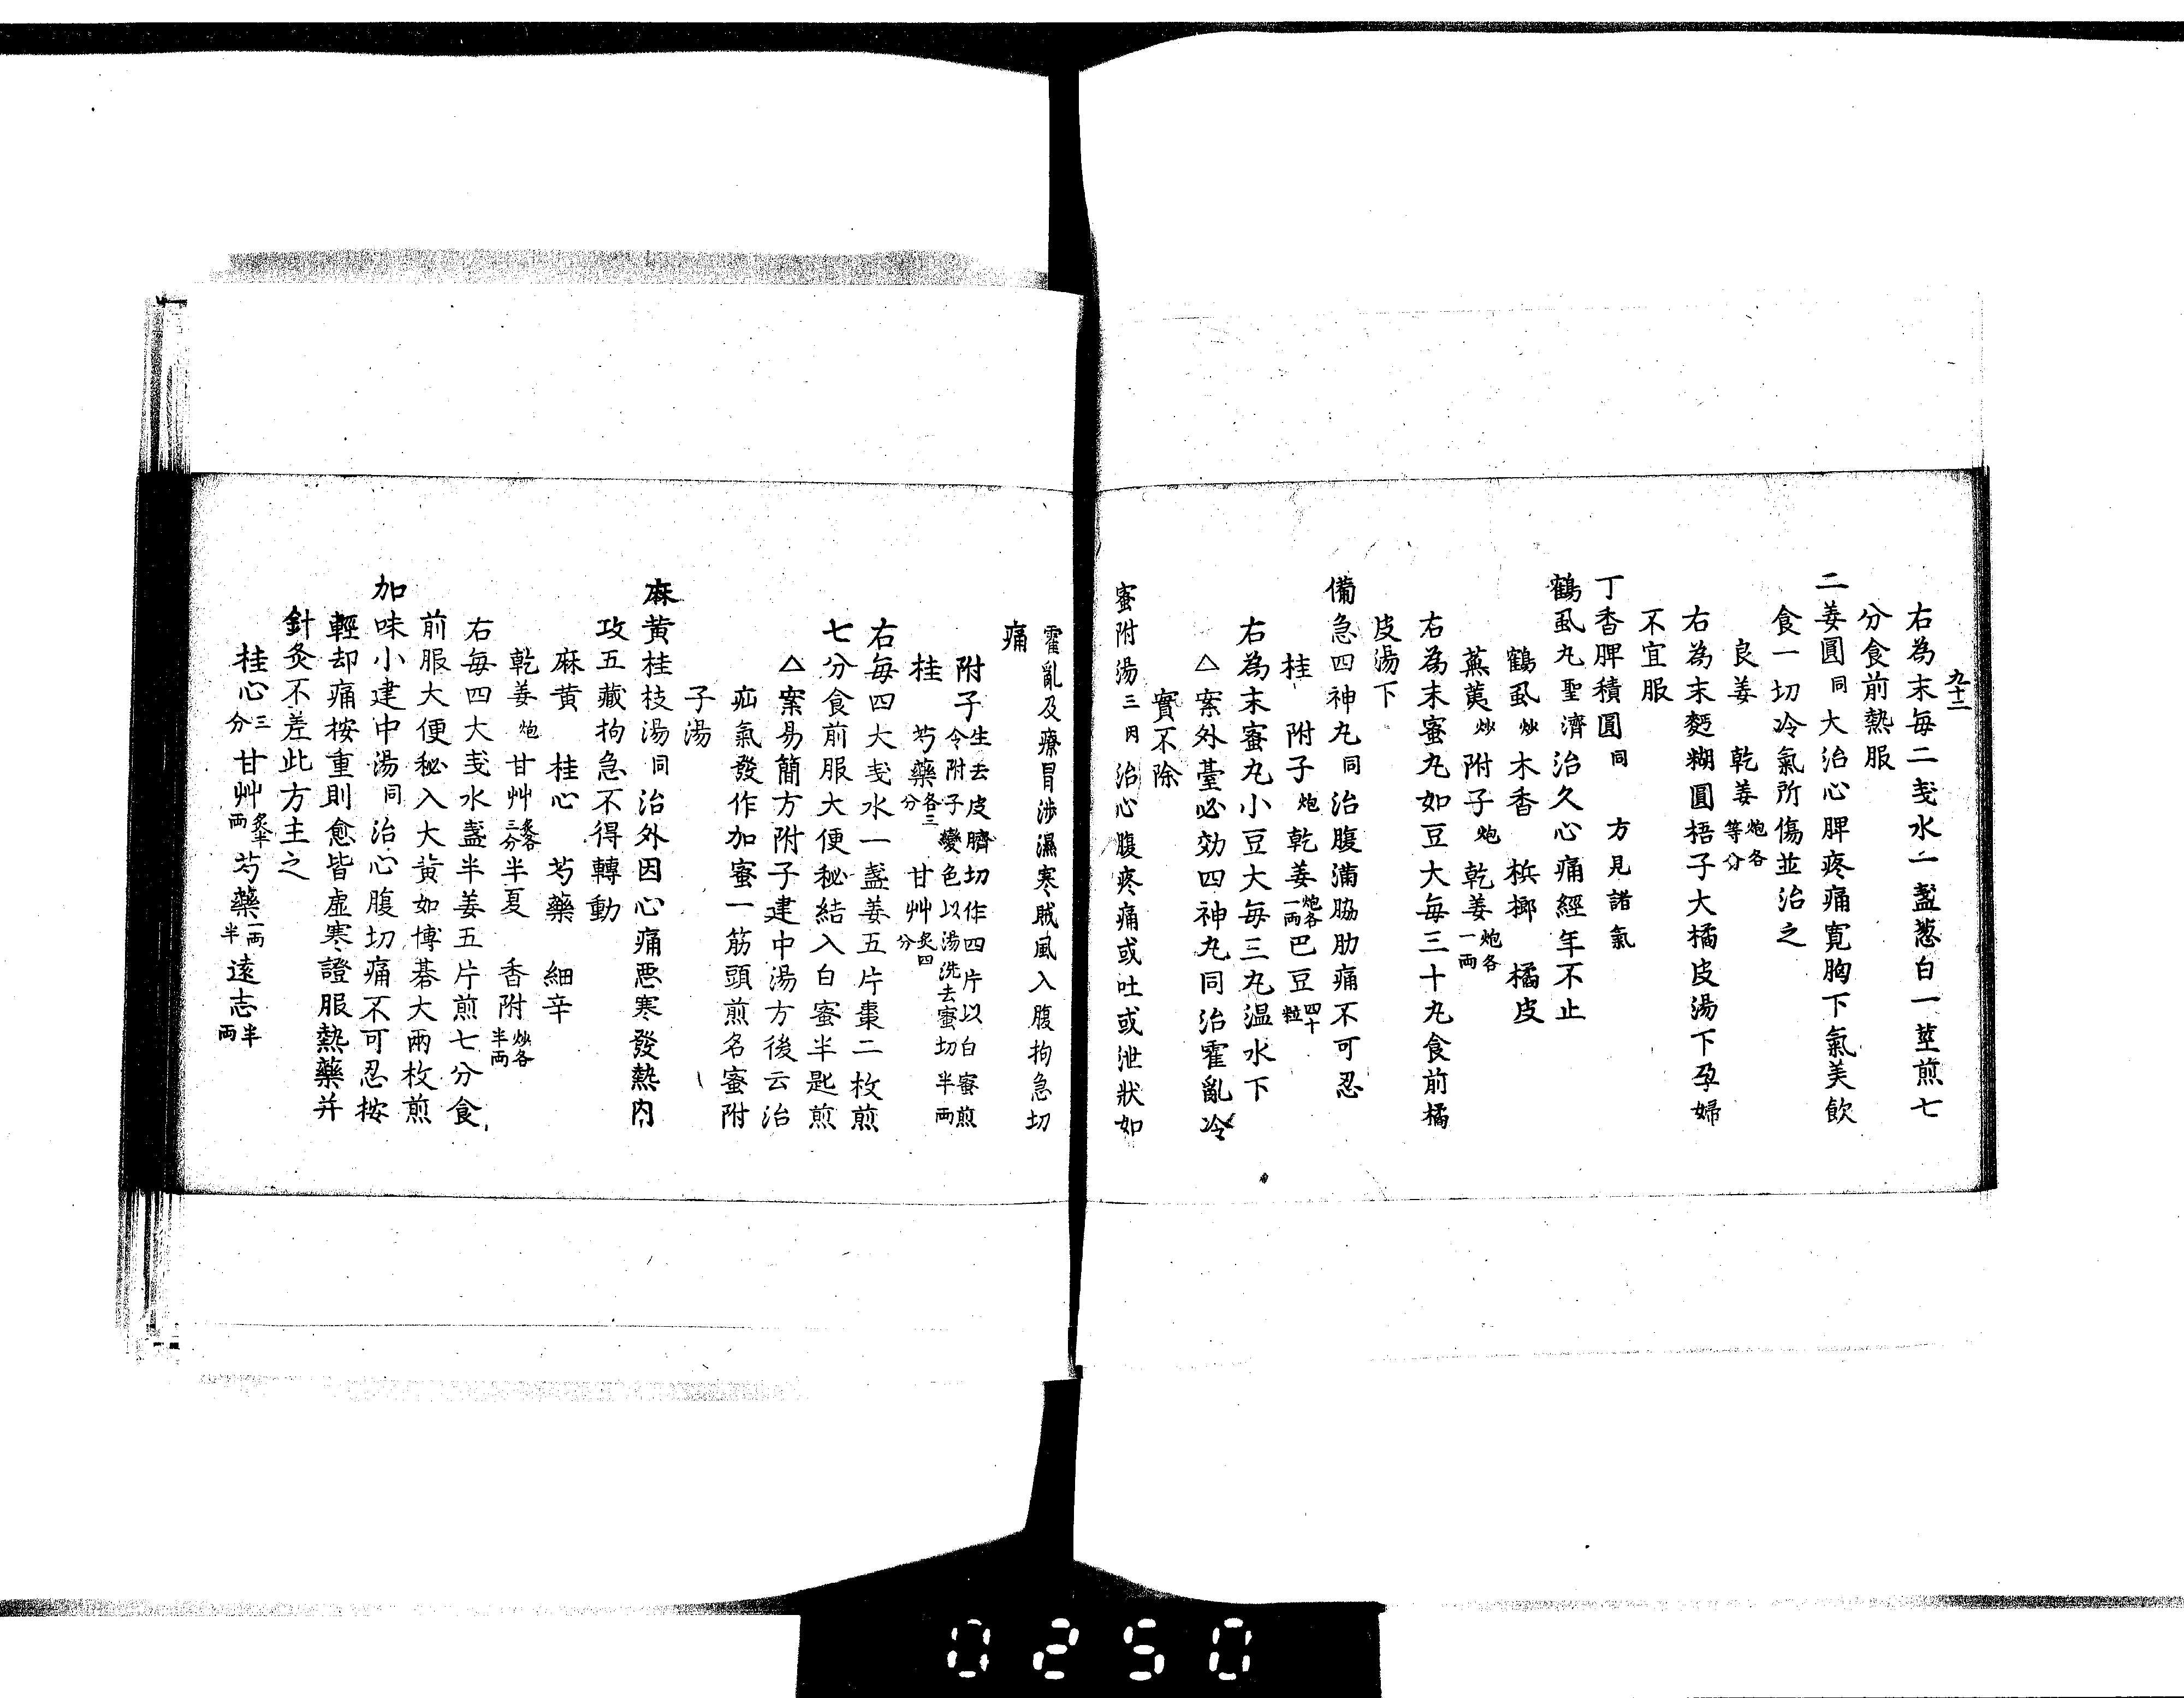 九十二
右為末毎二戔水一盞葱白一莖煎七
分食前熱服
二姜圓同大治心脾疼痛寛胸下氣美飲
食一切冷氣所傷並治之
良姜　乾姜炮各等分
右為末麪糊圓梧子大橘皮湯下孕婦
不宜服
丁香脾積圓同　方見諸氣
鶴虱丸聖濟治久心痛經年不止
鶴虱炒木香　梹榔　橘皮
蕪荑炒附子炮乾姜炮各一兩
右為末蜜丸如豆大毎三十丸食前橘
皮湯下
備急四神丸同治腹滿脇肋痛不可忍
桂　附子炮乾姜炮各一兩巴豆四十粒
右為末蜜丸小豆大毎三丸温水下
△案外臺必効四神丸同治霍亂冷
實不除
蜜附湯三因治心腹疼痛或吐或泄狀如
霍亂及療冒渉濕寒賊風入腹拘急切
痛
附子生去皮臍切作四片以白蜜煎令附子變色以湯洗去蜜切半兩
桂　芍藥各三分　甘艸炙四分
右毎四大戔水一盞姜五片棗二枚煎
七分食前服大便秘結入白蜜半匙煎
△案易簡方附子建中湯方後云治
疝氣發作加蜜一筋頭煎名蜜附
子湯
麻黄桂枝湯同治外因心痛惡寒發熱内
攻五藏拘急不得轉動
麻黄　桂心　芍藥　細辛
乾姜炮甘艸炙各三分半夏　香附炒各半兩
右毎四大戔水盞半姜五片煎七分食
前服大便秘入大黄如博碁大兩枚煎
加味小建中湯同治心腹切痛不可忍按
輕却痛按重則愈皆虚寒證服熱藥并
針灸不差此方主之
桂心三分甘艸炙半兩芍藥一兩半遠志半兩
0250